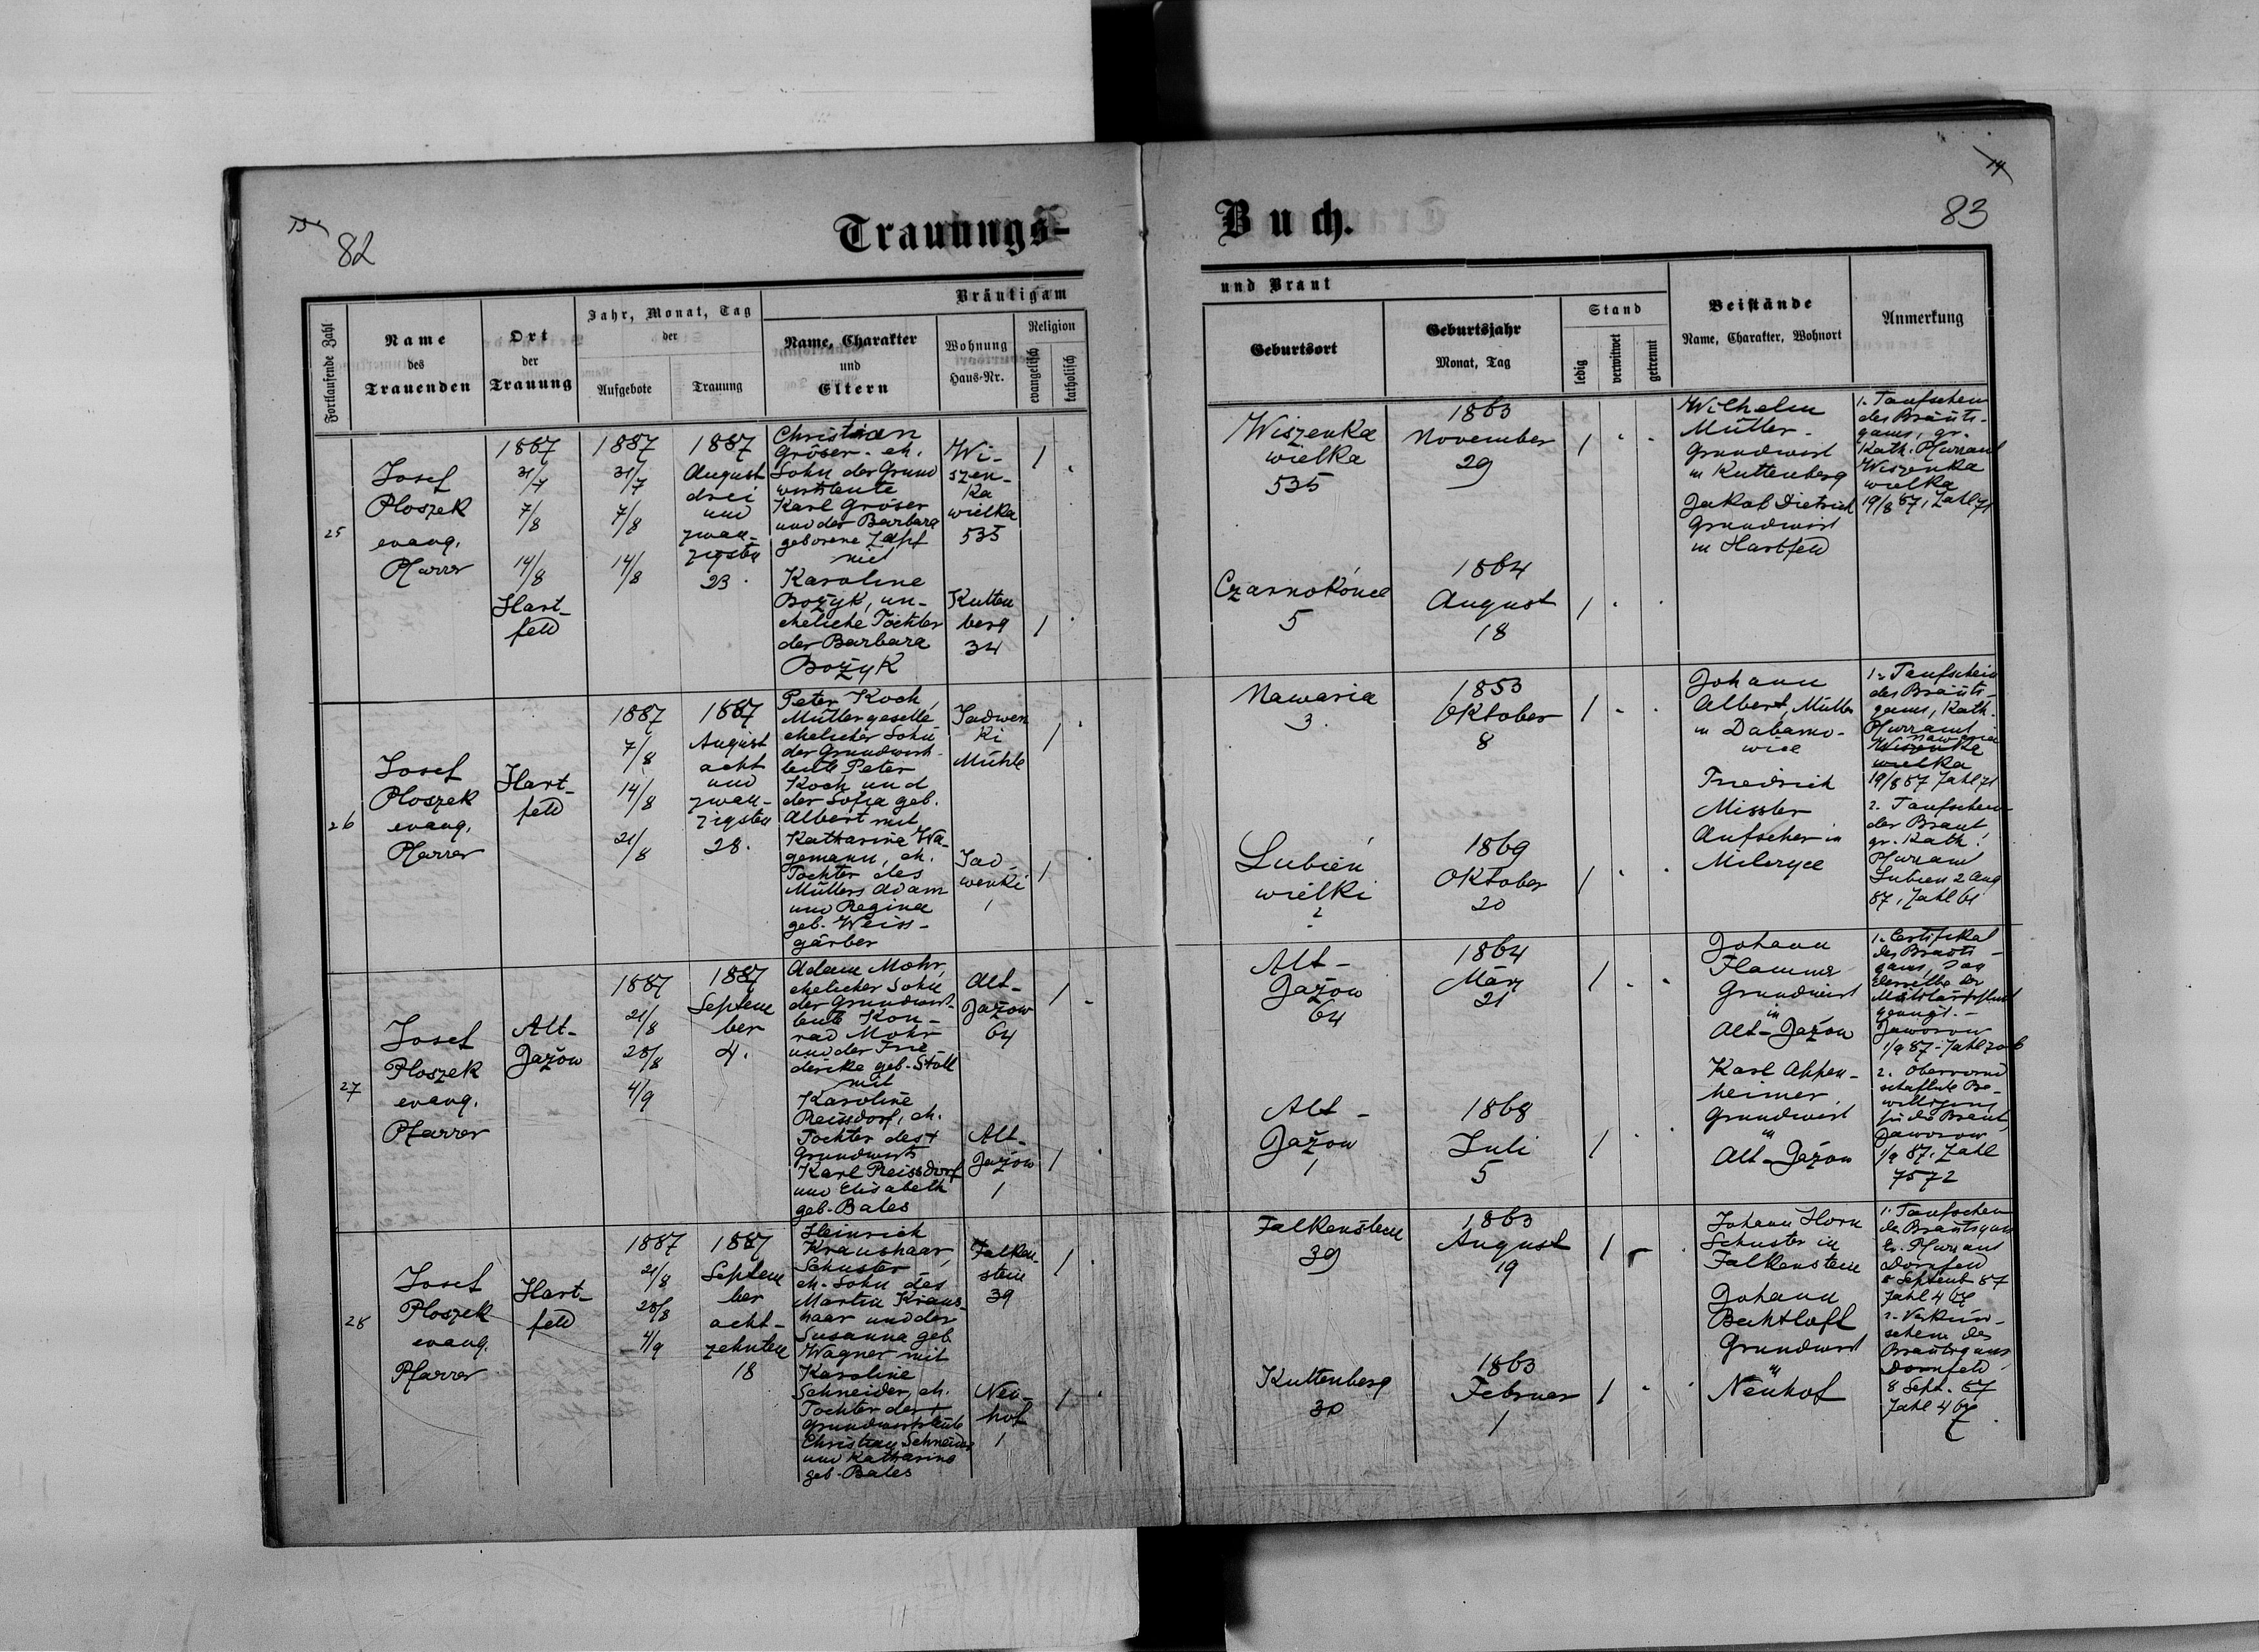 82
Trauungs-
Buch.
83
Fortlaufende Zahl
Name
des
Trauenden
Ort
der
Trauung
Jahr, Monat, Tag
der
Aufgebote
Trauung
Bräutigam
Name, Charakter
und
Eltern
Wohnung
Haus-Nr.
Religion
evangelisch
katholisch
und Braut
Geburtsort
Geburtsjahr
Monat, Tag
Stand
ledig
verwitwet
getrennt
Beistände
Name, Charakter, Wohnort
Anmerkung
25
Josef
Ploszek
evang.
Pfarrer
1887
31/7
7/8
14/8
Hart-
feld
1887
31/7
7/8
14/8
1887
August
drei
und
zwan-
zigsten
23.
Christian
Gröser. eh.
Sohn der Grund
wirtsleute
Karl Gröser
und der Barbara
geborene Zapf
mit
Karoline
Bożyk, un-
eheliche Tochter
der Barbara
Bożyk
Wi-
szen-
ka
wielka
535
Kutten
berg
34
1
1
Wiszenka
wielka
535
Czarnokońce
5
1863
November
29
1864
August
18
1
1
Wilhelm
Müller
Grundwirt
in Kuttenberg
Jakob Dietrich
Grundwirt
in Hartfeld
1. Taufschein
des Bräuti-
gams, gr.
Kath. Pfarramt
Wiszenka
wielka
19/8 87, Zahl 71
26
Josef
Ploszek
evang.
Pfarrer
Hart-
feld
1887
7/8
14/8
21/8
1887
August
acht
und
zwan-
zigsten
28.
Peter Koch,
Müllergeselle
ehelicher Sohn
der Grundwirt-
leute Peter
Koch und
der Sofia geb.
Albert mit
Katharina Wa-
gemann, eh.
Tochter des
Müllers Adam
und Regina
geb. Weiss-
gärber
Mühle
1
1
1
Nawaria
3.
Lubień
wielki
2
1853
Oktober
8
1869
Oktober
20
1
1
Johann
Albert, Müller
in
Friedrich
Missler
Aufseher in
1. Taufschein
des Bräuti-
gams, Kath.
Pfarramt
Nawaria
Wiszenka
wielka
19/8 87 Zahl 71
2. Taufschein
der Braut
gr. Kath.
Pfarramt
Lubien 2 Aug
87, Zahl 61
27
Josef
Ploszek
evang.
Pfarrer
Alt-
Jażow
1887
21/8
28/8
4/9
1887
Septem
ber
4.
Adam Mohr,
ehelicher Sohn
der Grundwirt-
leute Kon-
rad Mohr
und der Frie-
derike geb. Stoll
mit
Karoline
Reissdorf, eh.
Tochter des +
Grundwirts
Karl Reissdorf
und Elisabeth
geb. Bales
Alt-
Jażow
64
Alt-
Jażow
1
1
1
Alt-
Jażow
64
Alt-
Jażow
1
1864
März
21
1868
Juli
5
1
1
Johann
Flammer
Grundwirt
in
Alt-Jażow
Karl Appen-
heimer
Grundwirt
in
Alt-Jażow
1. Certifikat
des Bräuti-
gams, das
derselbe der
Militärpflicht
genügt.
Jaworow
2.
für die Braut
Jaworow
1/9 87. Zahl
7572
28
Josef
Ploszek
evang.
Pfarrer
Hart-
feld
1887
21/8
28/8
4/9
1887
Septem
ber
acht-
zehnten
18
Heinrich
Kraushaar,
Schuster,
eh. Sohn des
Martin Kraus-
haar und der
Susanna geb.
Wagner mit
Karoline
Schneider, eh.
Tochter der +
Grundwirtsleute
Christian Schneider
und Katharina
geb. Bales
Falken-
stein
39
Neu-
hof
1
1
1
Falkenstein
39
Kuttenberg
30
1863
August
19
1863
Februar
1
1
1
Johann Horn
Schuster in
Falkenstein
Johann
Bechtloff
Grundwirt
in
Neuhof
1. Taufschein
des Bräutigams
Ev. Pfarramt
Dornfeld
8 Septemb 87
2. Verkün-
schein des
Bräutigams
Dornfeld
8 Sept. 87